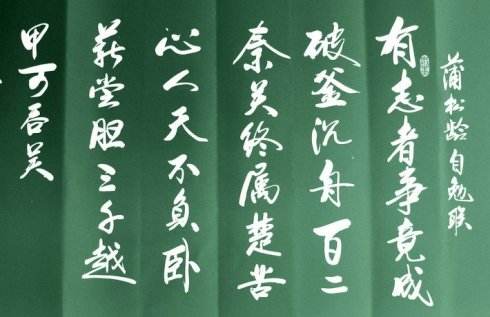 蒲松龄自勉联
有志者事竟成
破釜沉舟百二
秦关终属楚苦
心人天不负卧
薪尝胆三千越
甲可吞吴